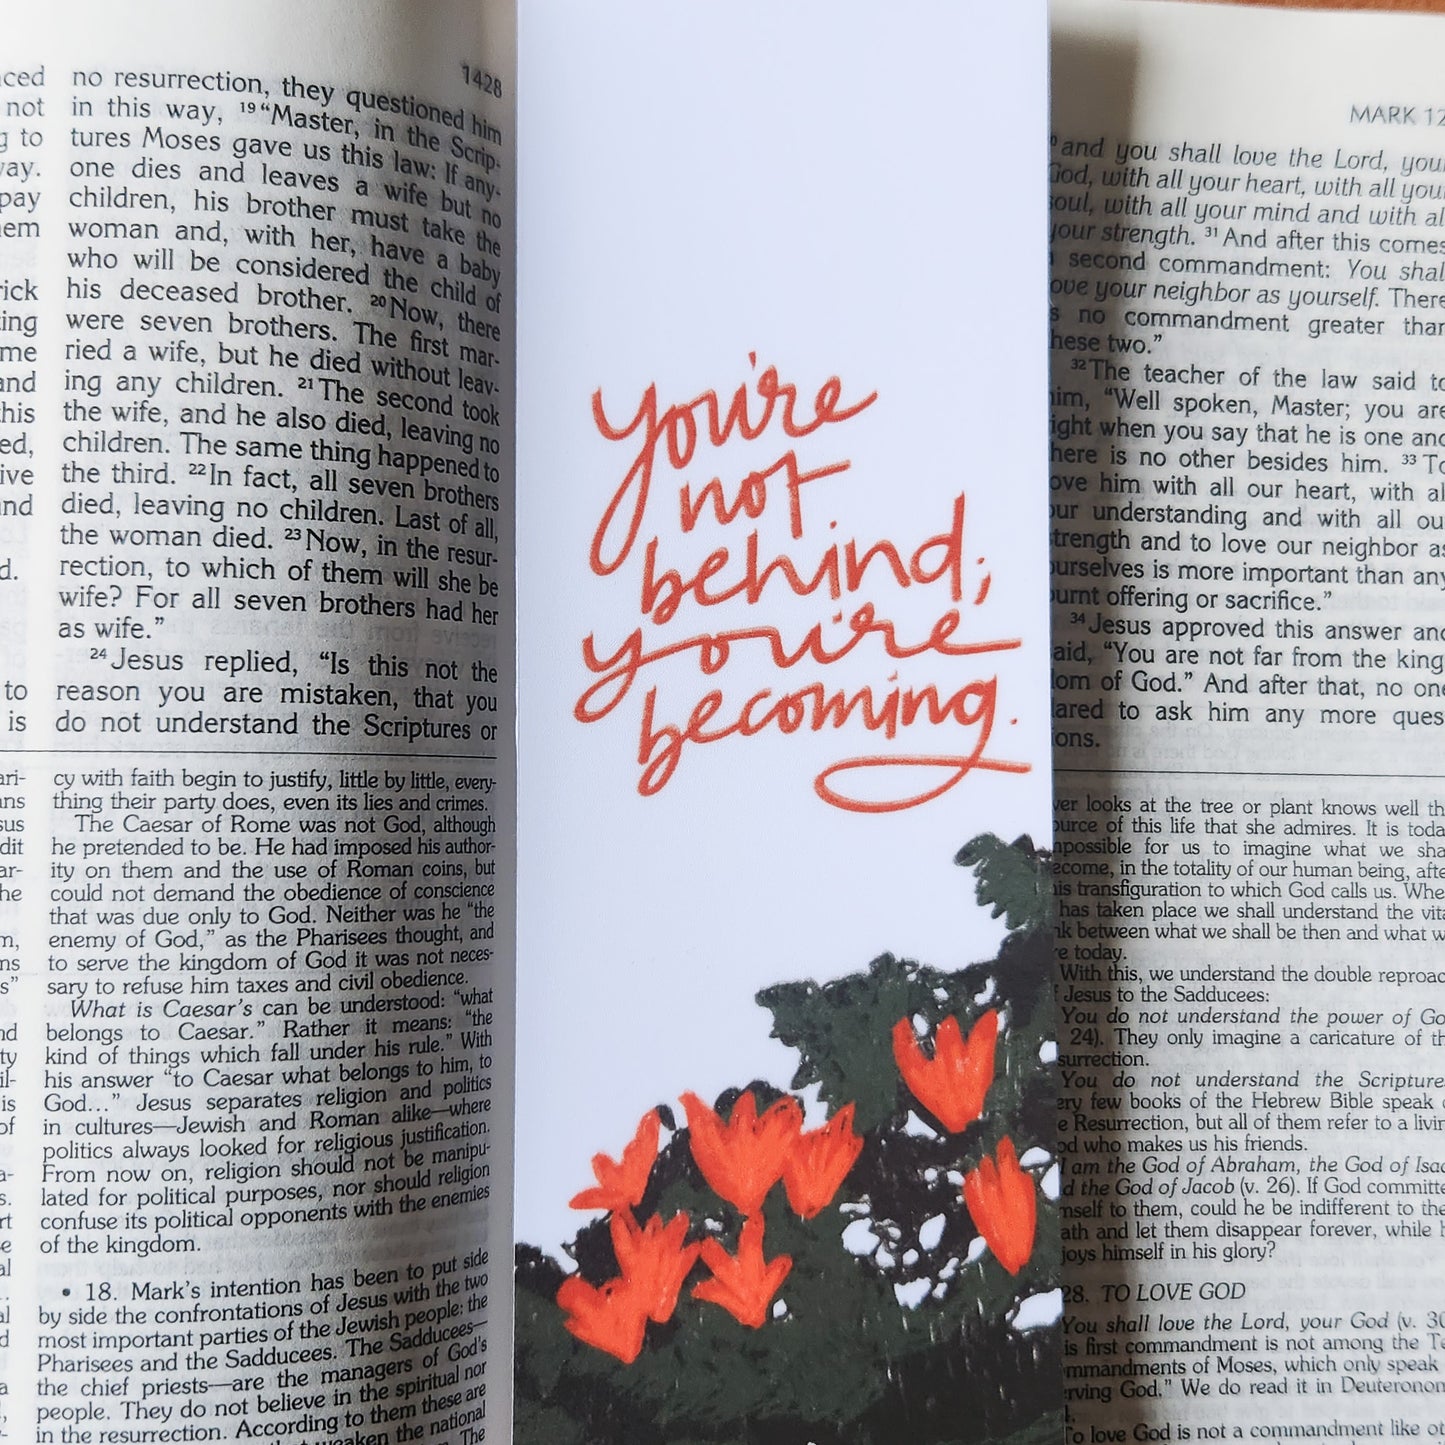 1428
no resurrection, they questioned him
in this way, 19"Master, in the Scrip-
tures Moses gave us this law: If any-
one dies and leaves a wife but no
children, his brother must take the
woman and, with her, have a baby
who will be considered the child of
his deceased brother. 20Now, there
were seven brothers. The first mar-
ried a wife, but he died without leav-
ing any children. 21The second took
the wife, and he also died, leaving no
children. The same thing happened to
the third. 22In fact, all seven brothers
died, leaving no children. Last of all,
the woman died. 23Now, in the resur-
rection, to which of them will she be
wife? For all seven brothers had her
as wife."
24Jesus replied, "Is this not the
reason you are mistaken, that you
do not understand the Scriptures or
cy with faith begin to justify, little by little, every-
thing their party does, even its lies and crimes.
The Caesar of Rome was not God, although
he pretended to be. He had imposed his author-
ity on them and the use of Roman coins, but
could not demand the obedience of conscience
that was due only to God. Neither was he "the
enemy of God," as the Pharisees thought, and
to serve the kingdom of God it was not neces-
sary to refuse him taxes and civil obedience.
What is Caesar's can be understood: "what
belongs to Caesar." Rather it means: "the
kind of things which fall under his rule." With
his answer "to Caesar what belongs to him, to
God..." Jesus separates religion and politics
in cultures—Jewish and Roman alike—where
politics always looked for religious justification.
From now on, religion should not be manipu-
lated for political purposes, nor should religion
confuse its political opponents with the enemies
of the kingdom.
• 18. Mark's intention has been to put side
by side the confrontations of Jesus with the two
most important parties of the Jewish people: the
Pharisees and the Sadducees. The Sadducees—
the chief priests—are the managers of God's
people. They do not believe in the spiritual nor
in the resurrection. According to them these are
weaken the national
The
you're
not
behind;
you're
becoming.
MARK 12
and you shall love the Lord, your
God, with all your heart, with all your
soul, with all your mind and with all
your strength. 31And after this comes
second commandment: You shall
love your neighbor as yourself. There
no commandment greater than
these two."
32The teacher of the law said to
him, "Well spoken, Master; you are
right when you say that he is one and
there is no other besides him. 33To
love him with all our heart, with all
our understanding and with all our
strength and to love our neighbor as
ourselves is more important than any
burnt offering or sacrifice."
34Jesus approved this answer and
said, "You are not far from the king-
dom of God." And after that, no one
dared to ask him any more ques-
tions.
looks at the tree or plant knows well the
source of this life that she admires. It is today
impossible for us to imagine what we shall
become, in the totality of our human being, after
this transfiguration to which God calls us. When
has taken place we shall understand the vital
link between what we shall be then and what we
today.
With this, we understand the double reproach
of Jesus to the Sadducees:
You do not understand the power of God
24). They only imagine a caricature of the
resurrection.
You do not understand the Scriptures
Very few books of the Hebrew Bible speak of
Resurrection, but all of them refer to a living
God who makes us his friends.
I am the God of Abraham, the God of Isaac
and the God of Jacob (v. 26). If God committed
himself to them, could he be indifferent to their
death and let them disappear forever, while he
enjoys himself in his glory?
28. TO LOVE GOD
You shall love the Lord, your God (v. 30
first commandment is not among the Ten
Commandments of Moses, which only speak
serving God." We do read it in Deuteronomy
To love God is not a commandment like